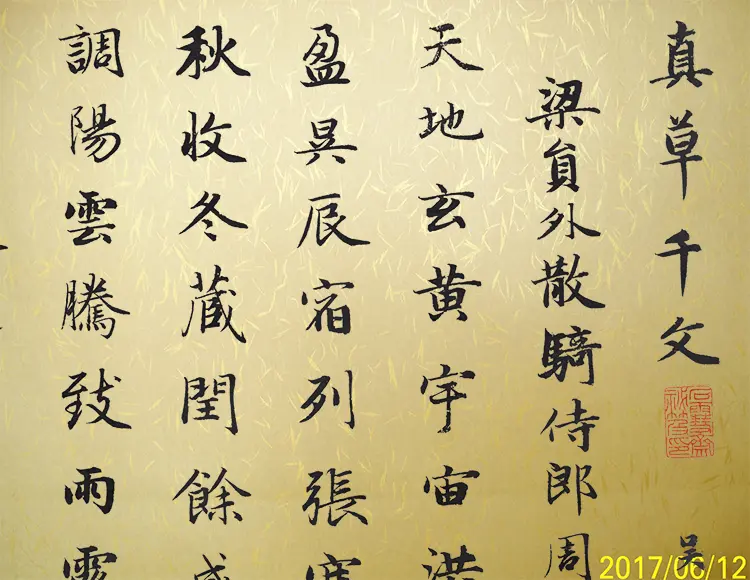 真草千文
吴
梁員外散騎侍郎周
天地玄黄宇宙洪
盈昃辰宿列張寒
秋收冬藏閏餘成
調陽雲騰致雨露
2017/06/12